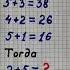 5+3=38
4+2=26
5+1=16
Тогда
2+5=?